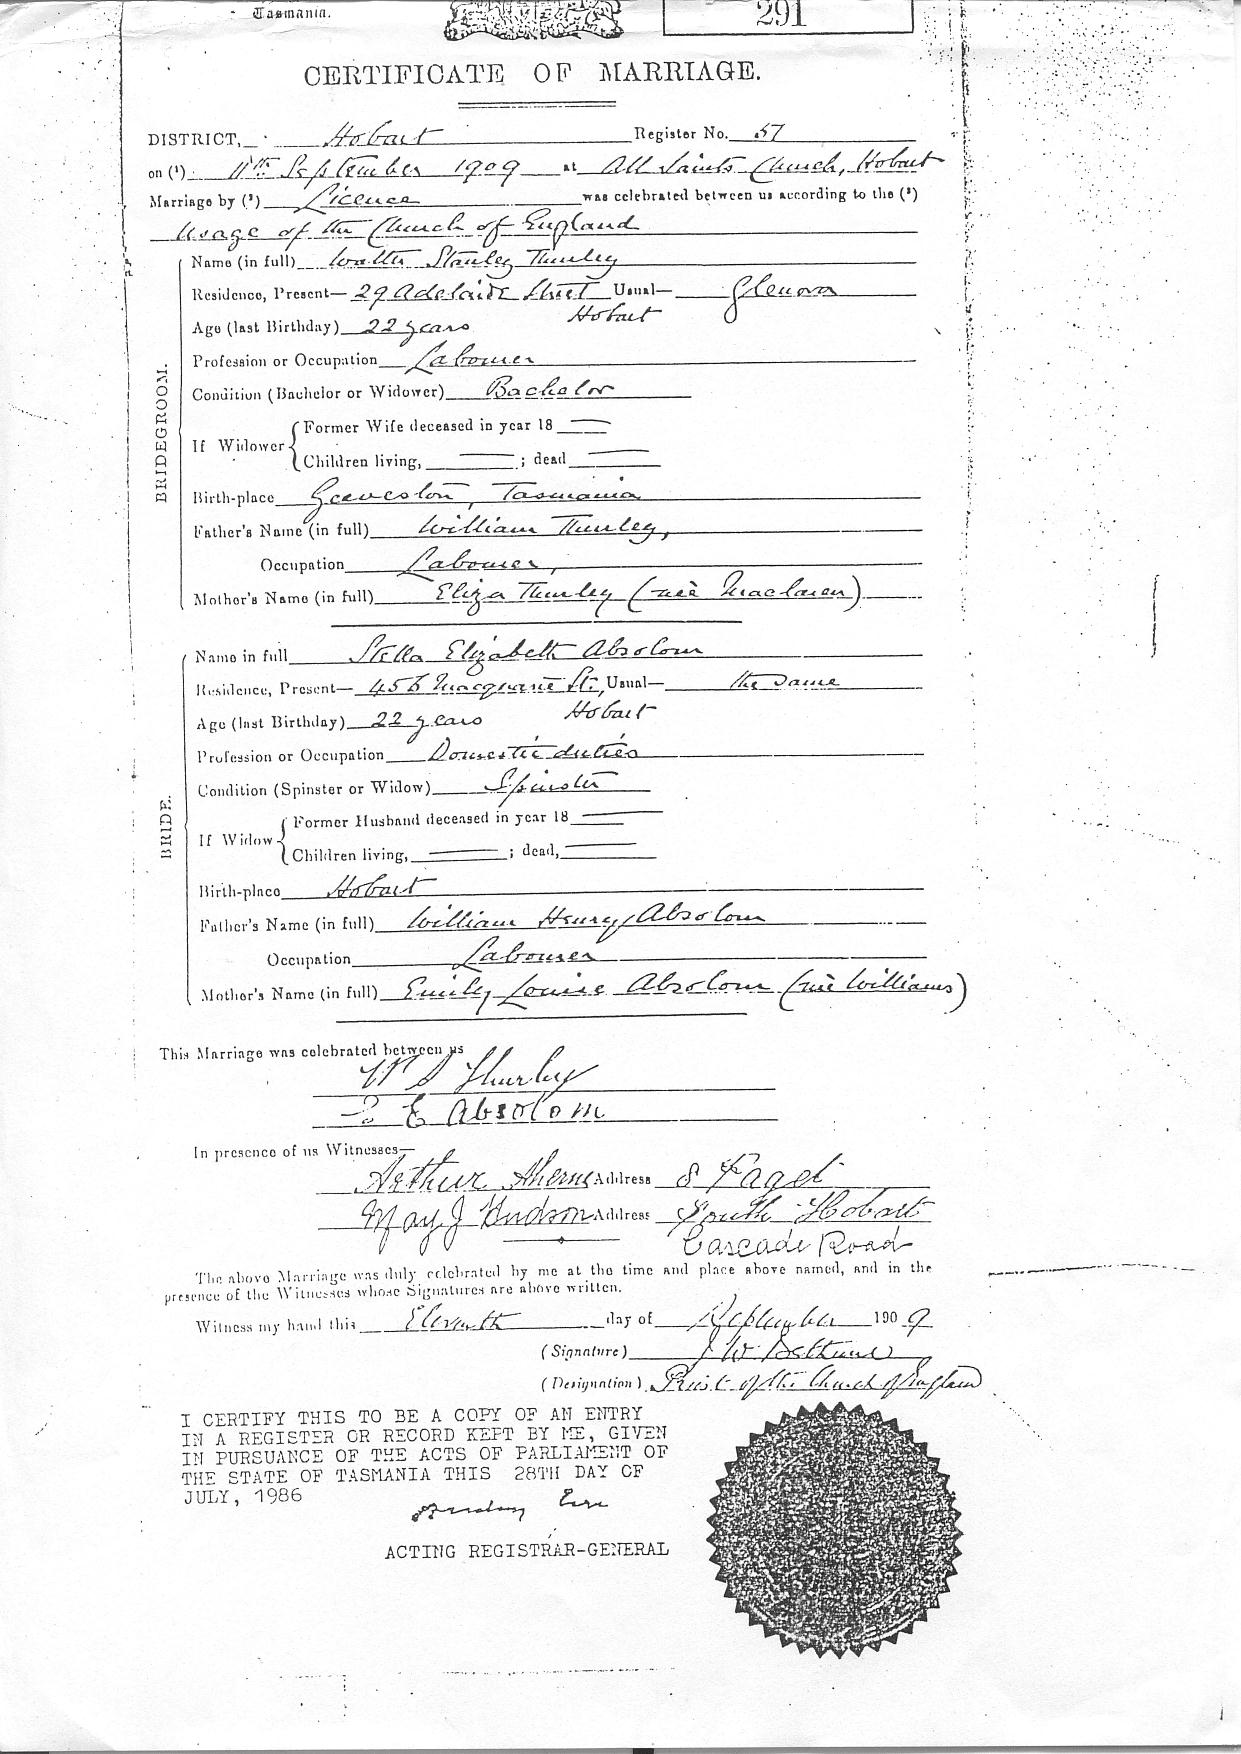 Tasmania.
291
CERTIFICATE OF MARRIAGE.
DISTRICT, Hobart Register No. 57
on (¹) 11th September 1909 at All Saints Church, Hobart
Marriage by (²) Licence was celebrated between us according to the (³)
Usage of the Church of England
BRIDEGROOM.
Name (in full) Walter Stanley Thurley
Residence, Present— 29 Adelaide Street Usual— Glenora
Hobart
Age (last Birthday) 22 years
Profession or Occupation Labourer
Condition (Bachelor or Widower) Bachelor
If Widower
Former Wife deceased in year 18
Children living, ; dead
Birth-place Geeveston, Tasmania
Father's Name (in full) William Thurley,
Occupation Labourer,
Mother's Name (in full) Eliza Thurley (née Maclaren)
BRIDE.
Name in full Stella Elizabeth Absolom
Residence, Present— 456 Macquarie St., Usual— the same
Hobart
Age (last Birthday) 22 years
Profession or Occupation Domestic duties
Condition (Spinster or Widow) Spinster
If Widow
Former Husband deceased in year 18
Children living, ; dead,
Birth-place Hobart
Father's Name (in full) William Henry Absolom
Occupation Labourer
Mother's Name (in full) Emily Louise Absolom (née Williams)
This Marriage was celebrated between us
W S Thurley
S E Absolom
In presence of us Witnesses—
Arthur Aherne Address 8 Paget
May J Hudson Address South Hobart
Cascade Road
The above Marriage was duly celebrated by me at the time and place above named, and in the
presence of the Witnesses whose Signatures are above written.
Witness my hand this Eleventh day of September 1909
(Signature) J W Bethune
(Designation) Priest of the Church of England
I CERTIFY THIS TO BE A COPY OF AN ENTRY
IN A REGISTER OR RECORD KEPT BY ME, GIVEN
IN PURSUANCE OF THE ACTS OF PARLIAMENT OF
THE STATE OF TASMANIA THIS 28TH DAY OF
JULY, 1986
ACTING REGISTRAR-GENERAL